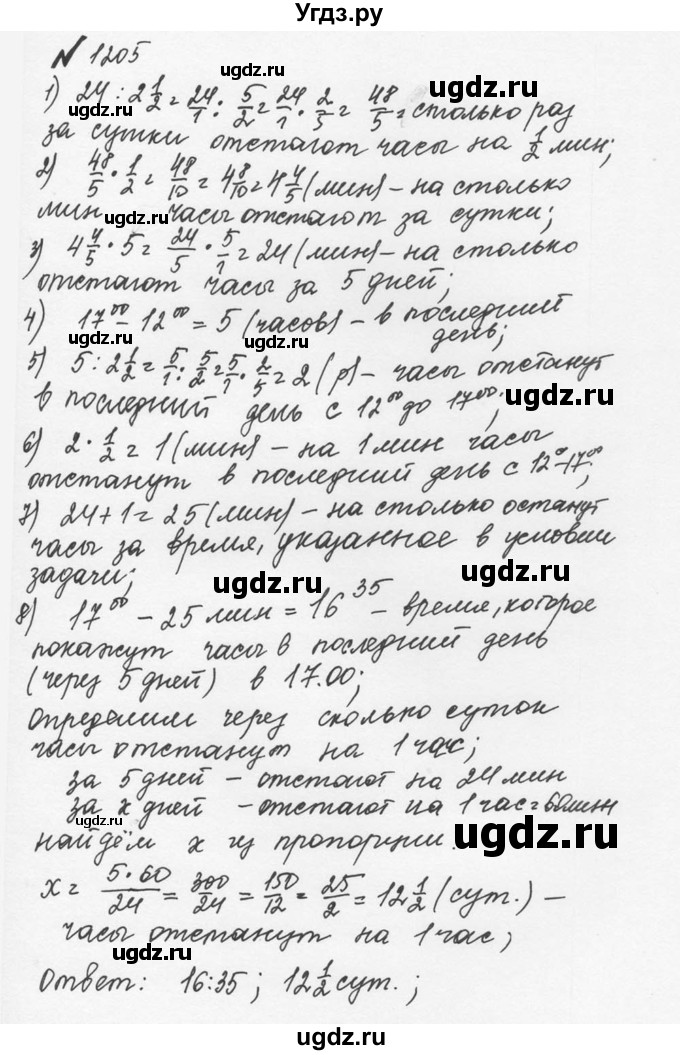 Угдз.ру
№ 1205
1) 24 : 2 1/2 = 24/1 : 5/2 = 24/1 · 2/5 = 48/5 = столько раз
за сутки отстают часы на 1/2 мин;
2) 48/5 · 1/2 = 48/10 = 4 8/10 = 4 4/5 (мин) – на столько
мин часы отстают за сутки;
3) 4 4/5 · 5 = 24/5 · 5/1 = 24 (мин) – на столько
отстают часы за 5 дней;
4) 17⁰⁰ – 12⁰⁰ = 5 (часов) – в последний
день;
5) 5 : 2 1/2 = 5/1 : 5/2 = 5/1 · 2/5 = 2 (р) – часы отстанут
в последний день с 12⁰⁰ до 17⁰⁰;
6) 2 · 1/2 = 1 (мин) – на 1 мин часы
отстанут в последний день с 12⁰⁰–17⁰⁰;
7) 24 + 1 = 25 (мин) – на столько останут
часы за время, указанное в условии
задачи;
8) 17⁰⁰ – 25 мин = 16³⁵ – время, которое
покажут часы в последний день
(через 5 дней) в 17.00;
Определим через сколько суток
часы отстанут на 1 час;
за 5 дней – отстают на 24 мин
за x дней – отстают на 1 час = 60 мин
найдём x из пропорции.
x = 5·60/24 = 300/24 = 150/12 = 25/2 = 12 1/2 (сут.) –
часы отстанут на 1 час;
Ответ: 16:35; 12 1/2 сут.;
ugdz.ru
ugdz.ru
ugdz.ru
ugdz.ru
ugdz.ru
ugdz.ru
ugdz.ru
ugdz.ru
ugdz.ru
ugdz.ru
ugdz.ru
ugdz.ru
ugdz.ru